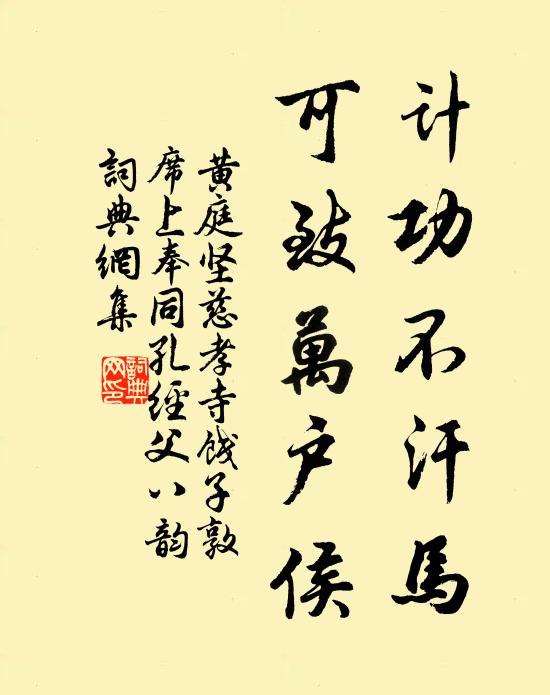 计功不汗馬
可致萬户侯
黄庭坚慈孝寺饯子敦
席上奉同孔經父八韵
詞典網集
詞典
网印